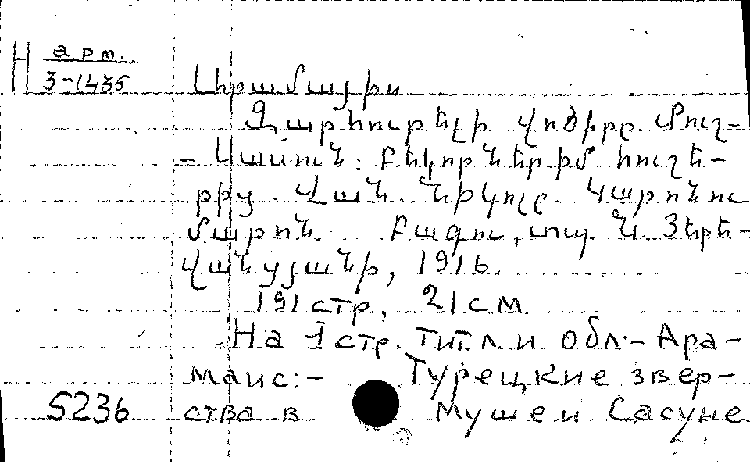 Н арм.
3-1435
Արամայիս
Զարհուրելի վոճիրը Մուշ-
- Սասուն: Բեկորներ իմ հուշե-
րից. Վան. Նիկոլը. Կարոնու
Մարոն. Բագու, տպ. Ն. Յերե-
վանցյանի, 1916.
191 стр, 21 см
На 1 стр. тит. л и обл:- Ара-
маис:- Турецкие звер-
5236 ства в Муше и Сасуне